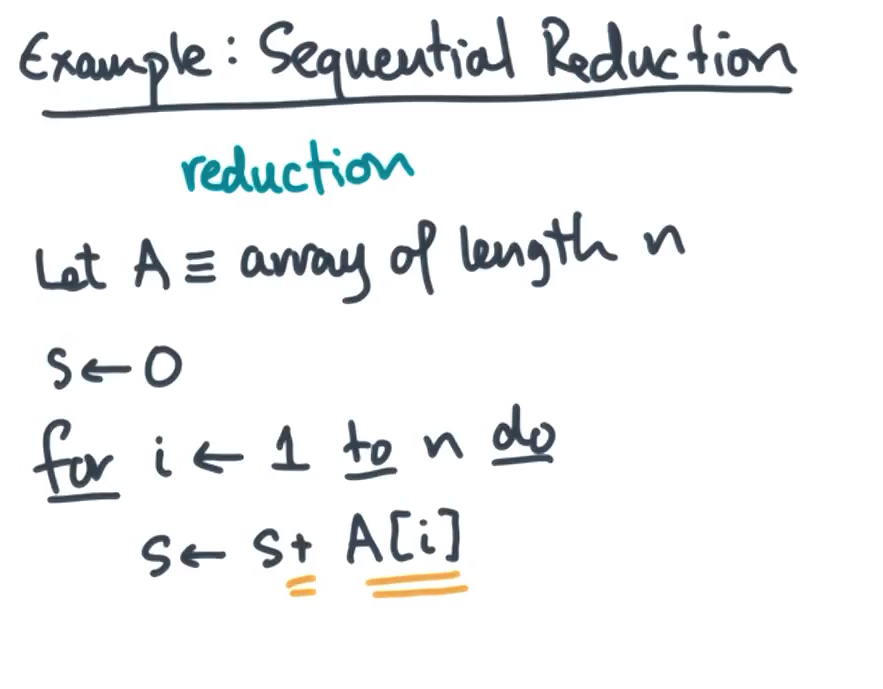 Example: Sequential Reduction
reduction
Let A ≡ array of length n
s ← 0
for i ← 1 to n do
s ← s + A[i]